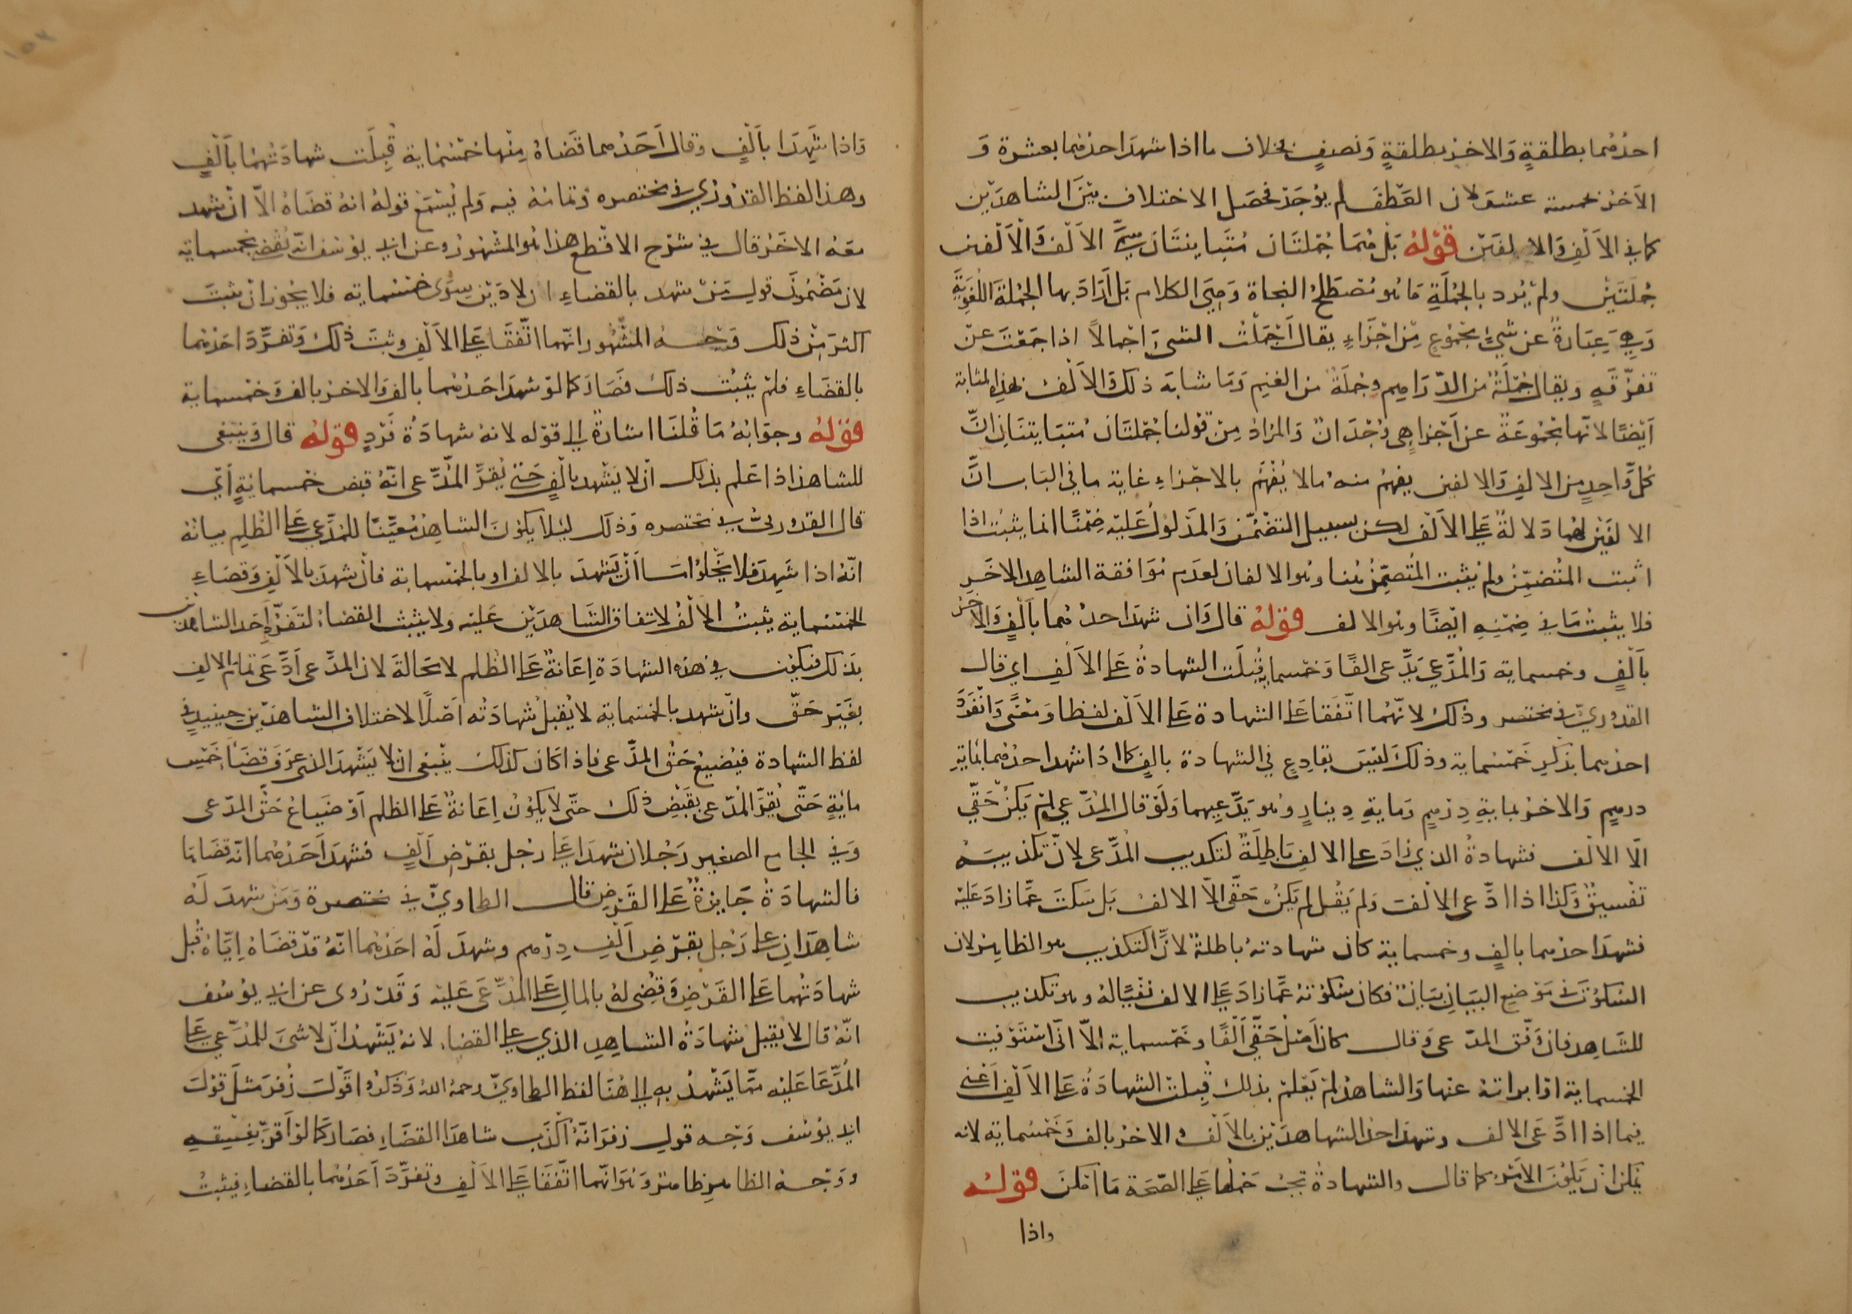 احدهما بطلقةٍ والاخر بطلقةٍ ونصفٍ بخلاف ما اذا شهد احدهما بعشرة و
الآخر بخمسة عشر لان العطف لم يوجد فحصل الاختلاف بين الشاهدين
كما في الألف والالفين قوله بل هما جملتان متباينتان سمى الألف والألفين
جملتين ولم يرد بالجملة ما هو مصطلح النحاة وهي الكلام بل أراد بها الجملة اللغوية
وهي عبارة عن شيء مجموع من اجزاءٍ يقال اجملت الشيء اجمالاً اذا جمعت عن
تفرقةٍ ويقال جملة من الدراهم وجملة من الغنم وما شابه ذلك والألف بهذه المثابة
ايضًا لانها مجموعة عن اجزاء هي وحدان والمراد من قولنا جملتان متباينتان ان
كل واحد من الالف والالفين يفهم منه ما لا يفهم بالاجزاء غاية ما في الباب ان
الالفين لهما دلالة على الألف لكن بسبيل التضمن والمدلول عليه ضمنًا انما يثبت اذا
اثبت المتضمن ولم يثبت المتضمن هنا وهو الالفان لعدم موافقة الشاهد الاخر
فلا يثبت ما في ضمنه ايضًا وهو الالف قوله قال وان شهد احدهما بألفٍ والآخر
بألفٍ وخمسماية والمدعي يدعى الفًا وخمسماية قبلت الشهادة على الألف اي قال
القدوري في مختصره وذلك لانهما اتفقا على الشهادة على الألف لفظا ومعنًى وانفرد
احدهما بذكر خمسماية وذلك ليس بقادح في الشهادة بالف كما اذا شهد احدهما بماية
درهم والاخر بماية درهم وماية دينار وهو يدعيهما ولو قال المدعي لم يكن حقي
الا الالف فشهادة الذي زاد على الالف باطلة لتكذيب المدعى لان تكذيبه
تفسيق وكذا اذا ادعى الالف ولم يقل لم يكن حقى الا الالف بل سكت عما زاد عليه
فشهد احدهما بالفٍ وخمسماية كان شهادته باطلة لان التكذيب هو الظاهر لان
السكوت في موضع البيان بيان فكان سكوته عما زاد على الالف نفيًا له وهو تكذيب
للشاهد فان وفق المدعى وقال كان اصل حقي ألفًا وخمسماية الا انى استوفيت
الخمسماية او ابراته عنها والشاهد لم يعلم بذلك قبلت الشهادة على الألف اعني
فيما اذا ادعى الالف وشهد احد الشاهدين بالألف والاخر بالف وخمسماية لانه
يمكن ان يكون الامر كما قال والشهادة يجب حملها على الصحة ما امكن قوله
واذا
واذا شهدا بألفٍ وقال احدهما قضاه منها خمسماية قبلت شهادتهما بألفٍ
وهذا لفظ القدوري في مختصره وتمامه فيه ولم يسمع قوله انه قضاه الا ان شهد
معه الاخر قال في شرح الاقطع هذا هو المشهور وعن ابي يوسف انه يقضى بخمسماية
لان مضمون قول من شهد بالقضاء ان لا دين سوى خمسماية فلا يجوز ان يثبت
اكثر من ذلك وجه المشهور انهما اتفقا على الالف وثبت ذلك وتفرد احدهما
بالقضاء فلم يثبت ذلك فصار كما لو شهد احدهما بالف والاخر بالف وخمسماية
قوله وجوابه ما قلنا اشارة الى قوله لانه شهادة فردٍ قوله قال وينبغى
للشاهد اذا علم بذلك ان لا يشهد بالفٍ حتى يقر المدعى انه قبض خمسمايةٍ أي
قال القدوري في مختصره وذلك ليلا يكون الشاهد معينًا للمدعي على الظلم بيانه
انه اذا شهد فلا يخلوا اما أن يشهد بالالف او بالخمسماية فان شهد بالألف وقضاء
الخمسماية يثبت الالف لاتفاق الشاهدين عليه ولا يثبت القضاء لتفرد احد الشاهدين
بذلك فيكون في هذه الشهادة إعانة على الظلم لا محالة لان المدعى ادعى تمام الالف
بغير حق وان شهد بالخمسماية لا يقبل شهادته اصلًا لاختلاف الشاهدين حينيذٍ في
لفظ الشهادة فيضيع حق المدعى فاذا كان كذلك ينبغى ان لا يشهد الذى عرف قضاء خمس
مايةٍ حتى يقر المدعى بقبض ذلك حتى لا يكون إعانة على الظلم او ضياع حق المدعى
وفي الجامع الصغير رجلان شهدا على رجل بقرض ألفٍ فشهد احدهما انه قضاها
فالشهادة جايزة على القرض قال الطحاوي في مختصره ومن شهد له
شاهدان على رجل بقرض الف درهم وشهد له احدهما انه قد قضاه إياه قبل
شهادتهما على القرض وقضى له بالمال على المدعى عليه وقد روى عن ابي يوسف
انه قال لا يقبل شهادة الشاهد الذي على القضاء لانه يشهد ان لا شيء للمدعي على
المدعا عليه مما يشهد به الى هنا لفظ الطحاوي رحمه الله وذكروا قول زفر مثل قول
ابي يوسف وجه قول زفر انه اكذب شاهد القضاء فصار كما لو أقر بفسقه
ووجه الظاهر ظاهر وهو انهما اتفقا على الألف وتفرد احدهما بالقضاء فيثبت